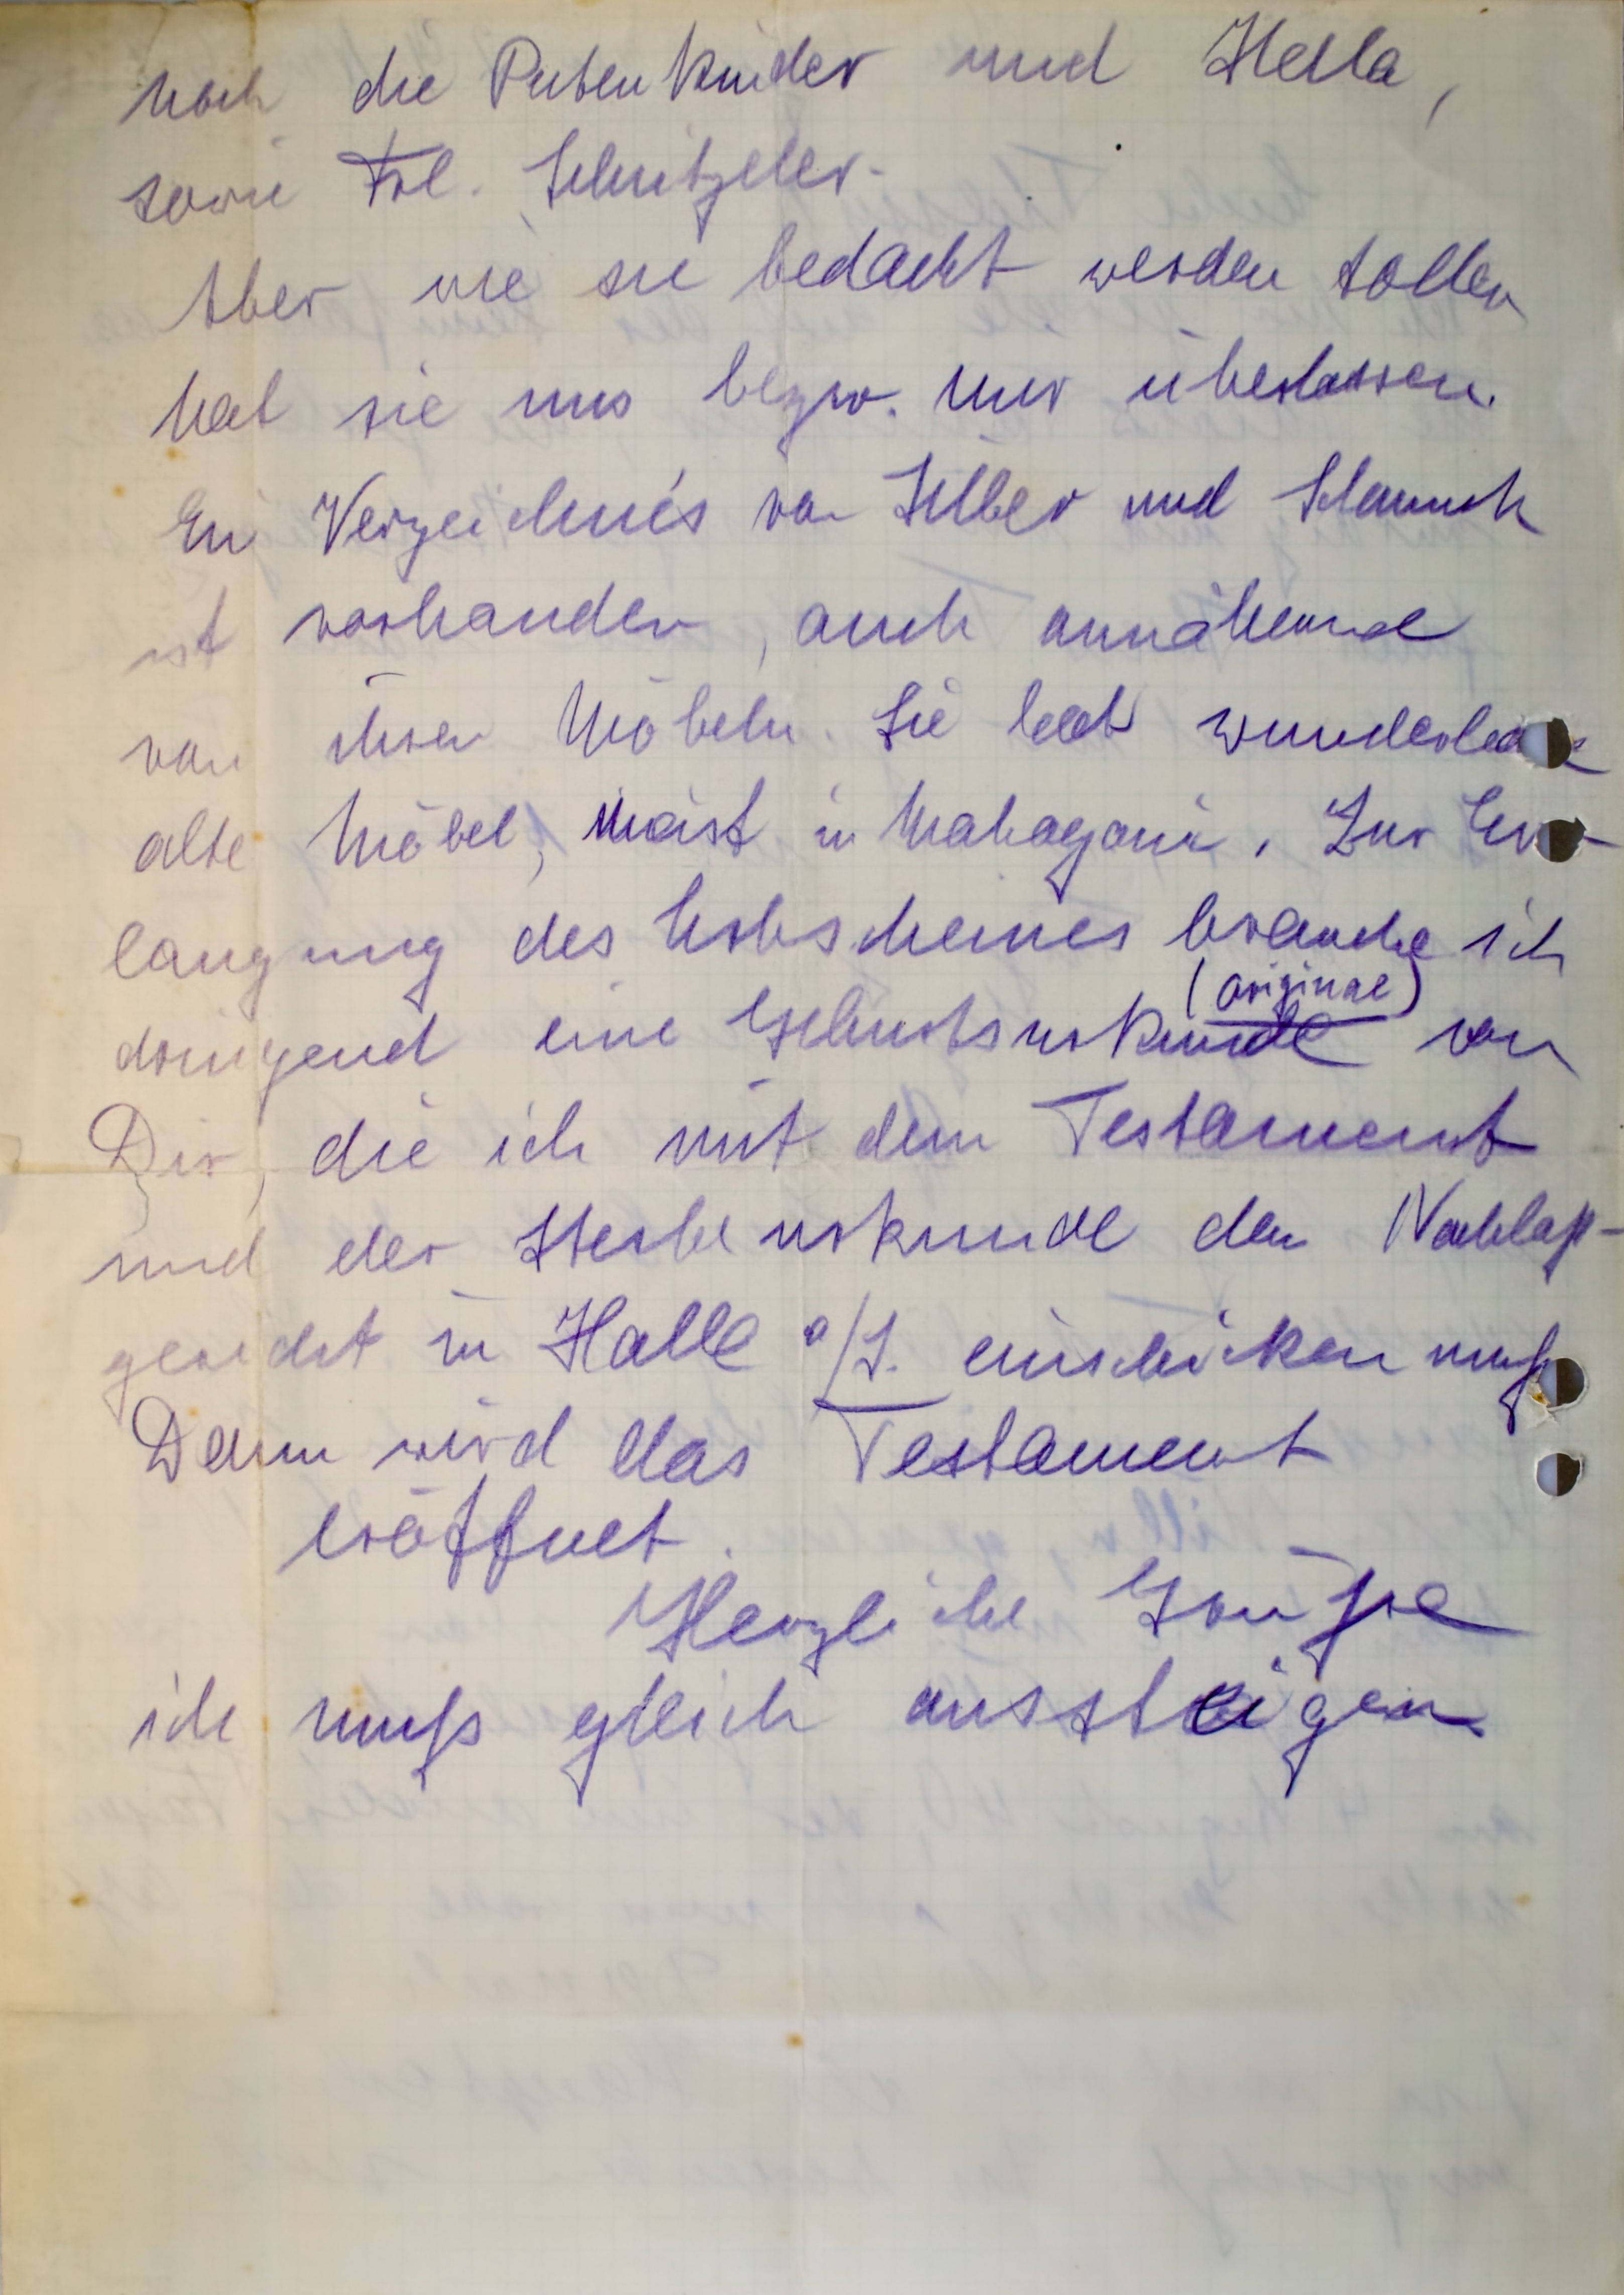 noch die Patenkinder und Hella,
sowie Frl. Schnitzeler.
Aber wie sie bedacht werden sollen
hat sie uns bezw. mir überlassen.
Ein Verzeichnis von Silber und Schmuck
ist vorhanden, auch annähernd
von ihren Möbeln. Sie hat wunderbare
alte Möbel, meist in Mahagoni. Zur Er-
langung des Erbscheines brauche ich
(original)
dringend eine Geburtsurkunde von
Dir, die ich mit dem Testament
und der Sterbeurkunde dem Nachlaß-
gericht in Halle a/S. einschicken muß
Dann wird das Testament
eröffnet.
Herzliche Grüße
ich muß gleich aussteigen